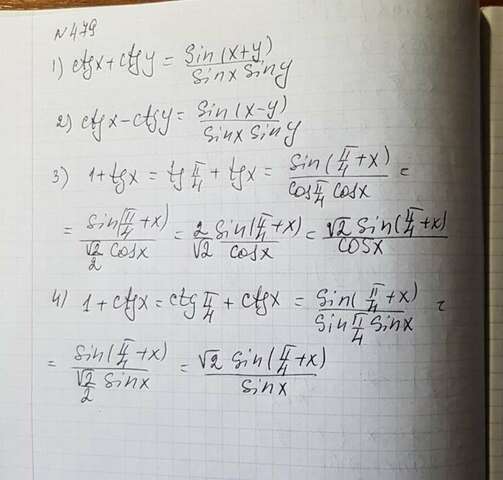 №479
1) ctgx+ctgy = Sin(x+y) / Sinx Siny
2) ctgx-ctgy = Sin(x-y) / Sinx Siny
3) 1+tgx = tg π/4 + tgx = Sin(π/4+x) / cos π/4 cosx =
= Sin(π/4+x) / √2/2 cosx = 2 Sin(π/4+x) / √2 cosx = √2 Sin(π/4+x) / cosx
4) 1+ctgx = ctg π/4 + ctgx = Sin(π/4+x) / Sin π/4 Sinx =
= Sin(π/4+x) / √2/2 Sinx = √2 Sin(π/4+x) / Sinx